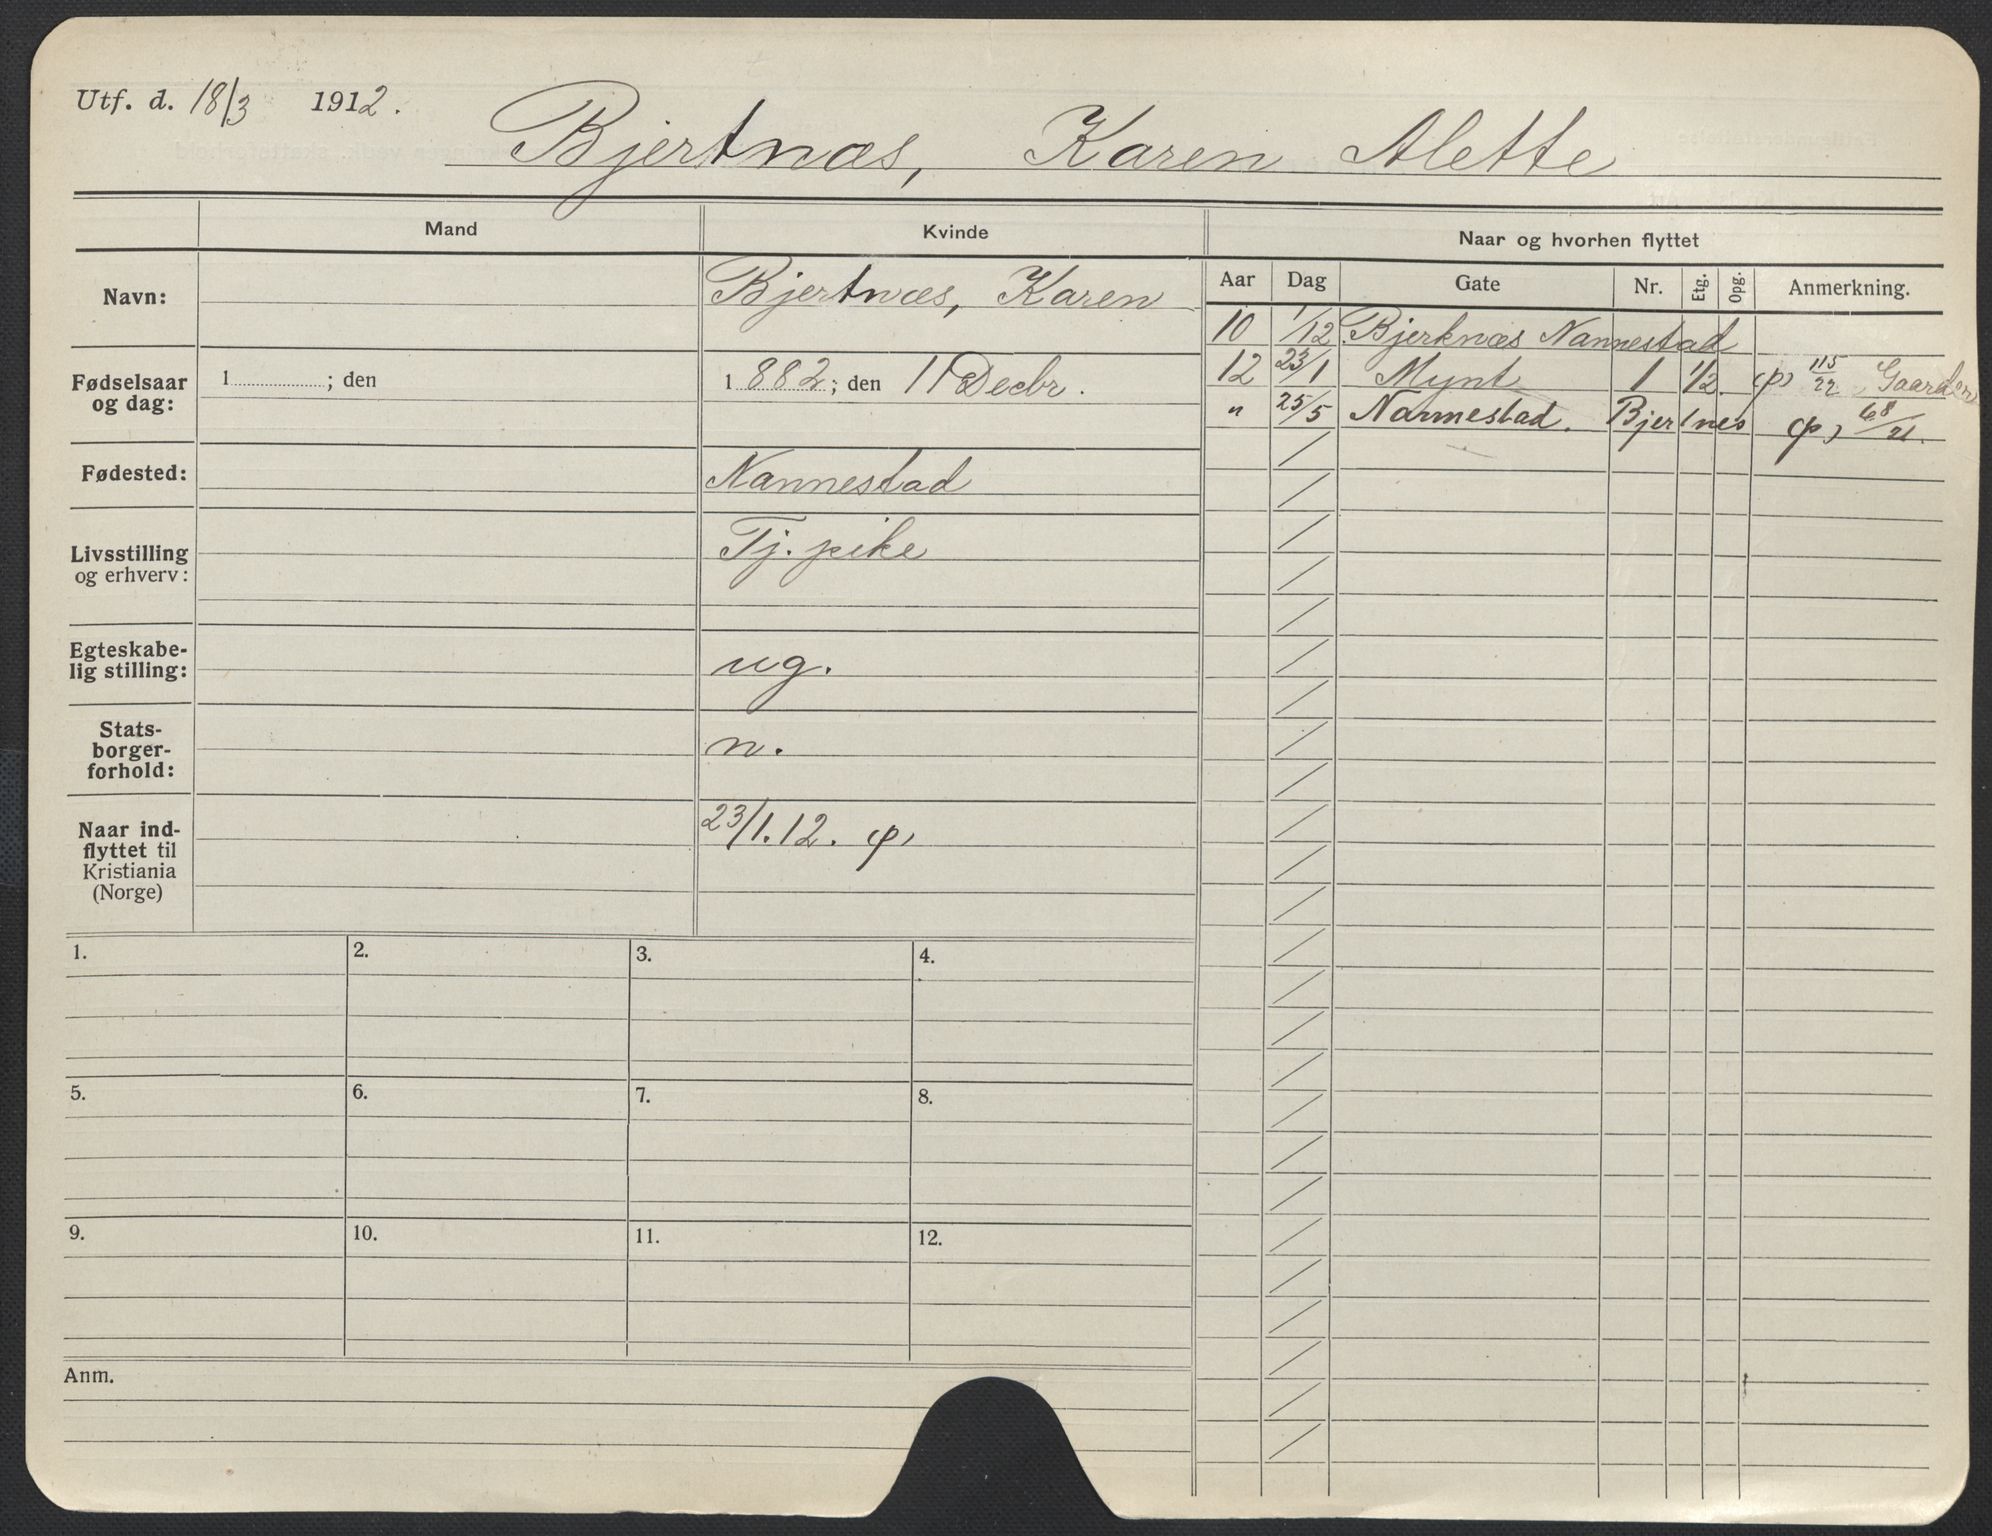 Utf. d. 18/3 1912.
Bjertnæs, Karen Alette
Mand
Kvinde
Naar og hvorhen flyttet
Navn:
Bjertnæs, Karen
Aar Dag Gate Nr. Etg. Opg. Anmerkning.
10 1/12 Bjerknæs Nannestad
12 23/1 Mynt 1 1/2 (p) 115/22 Gaarden
" 25/5 Nannestad. Bjertnes (p) 68/21.
Fødselsaar og dag:
1 ; den
1882; den 11 Decbr.
Fødested:
Nannestad
Livsstilling og erhverv:
Tj. pike
Egteskabe-
lig stilling:
ug.
Stats-
borger-
forhold:
n.
Naar ind-
flyttet til
Kristiania
(Norge)
23/1.12. p)
1. 2. 3. 4.
5. 6. 7. 8.
9. 10. 11. 12.
Anm.